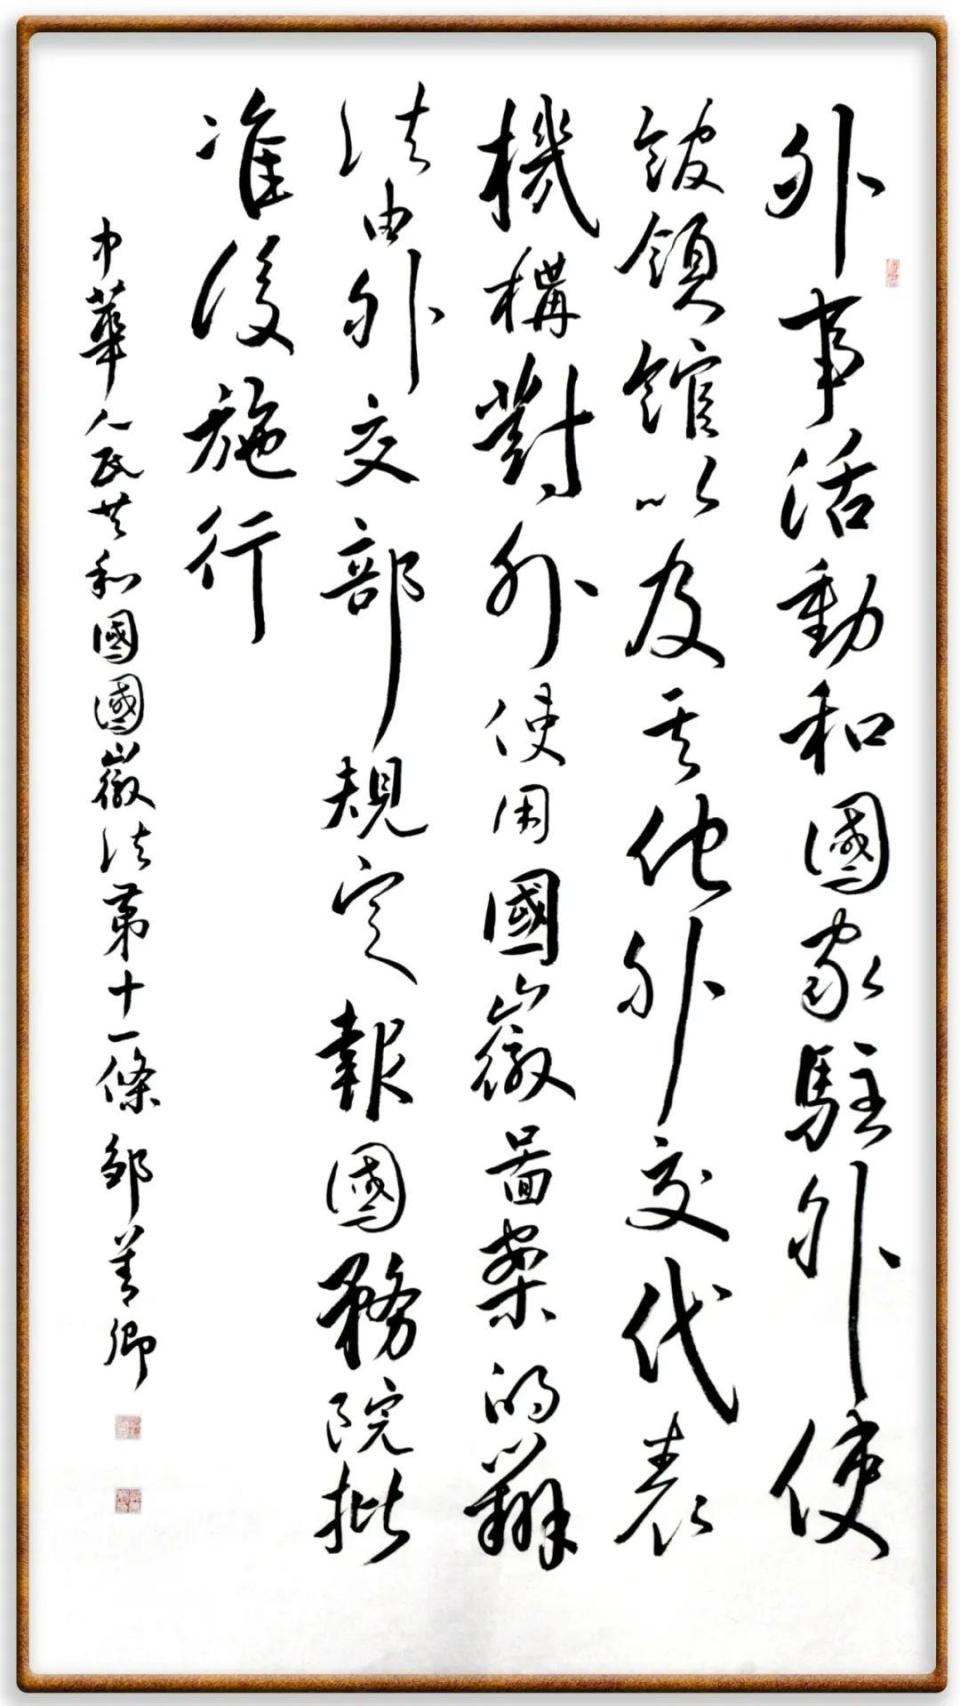 外事活動和國家駐外使
館領館以及其他外交代表
機構對外使用國徽圖案的辦
法由外交部規定報國務院批
准後施行
中華人民共和國國徽法第十一條 邹菁卿